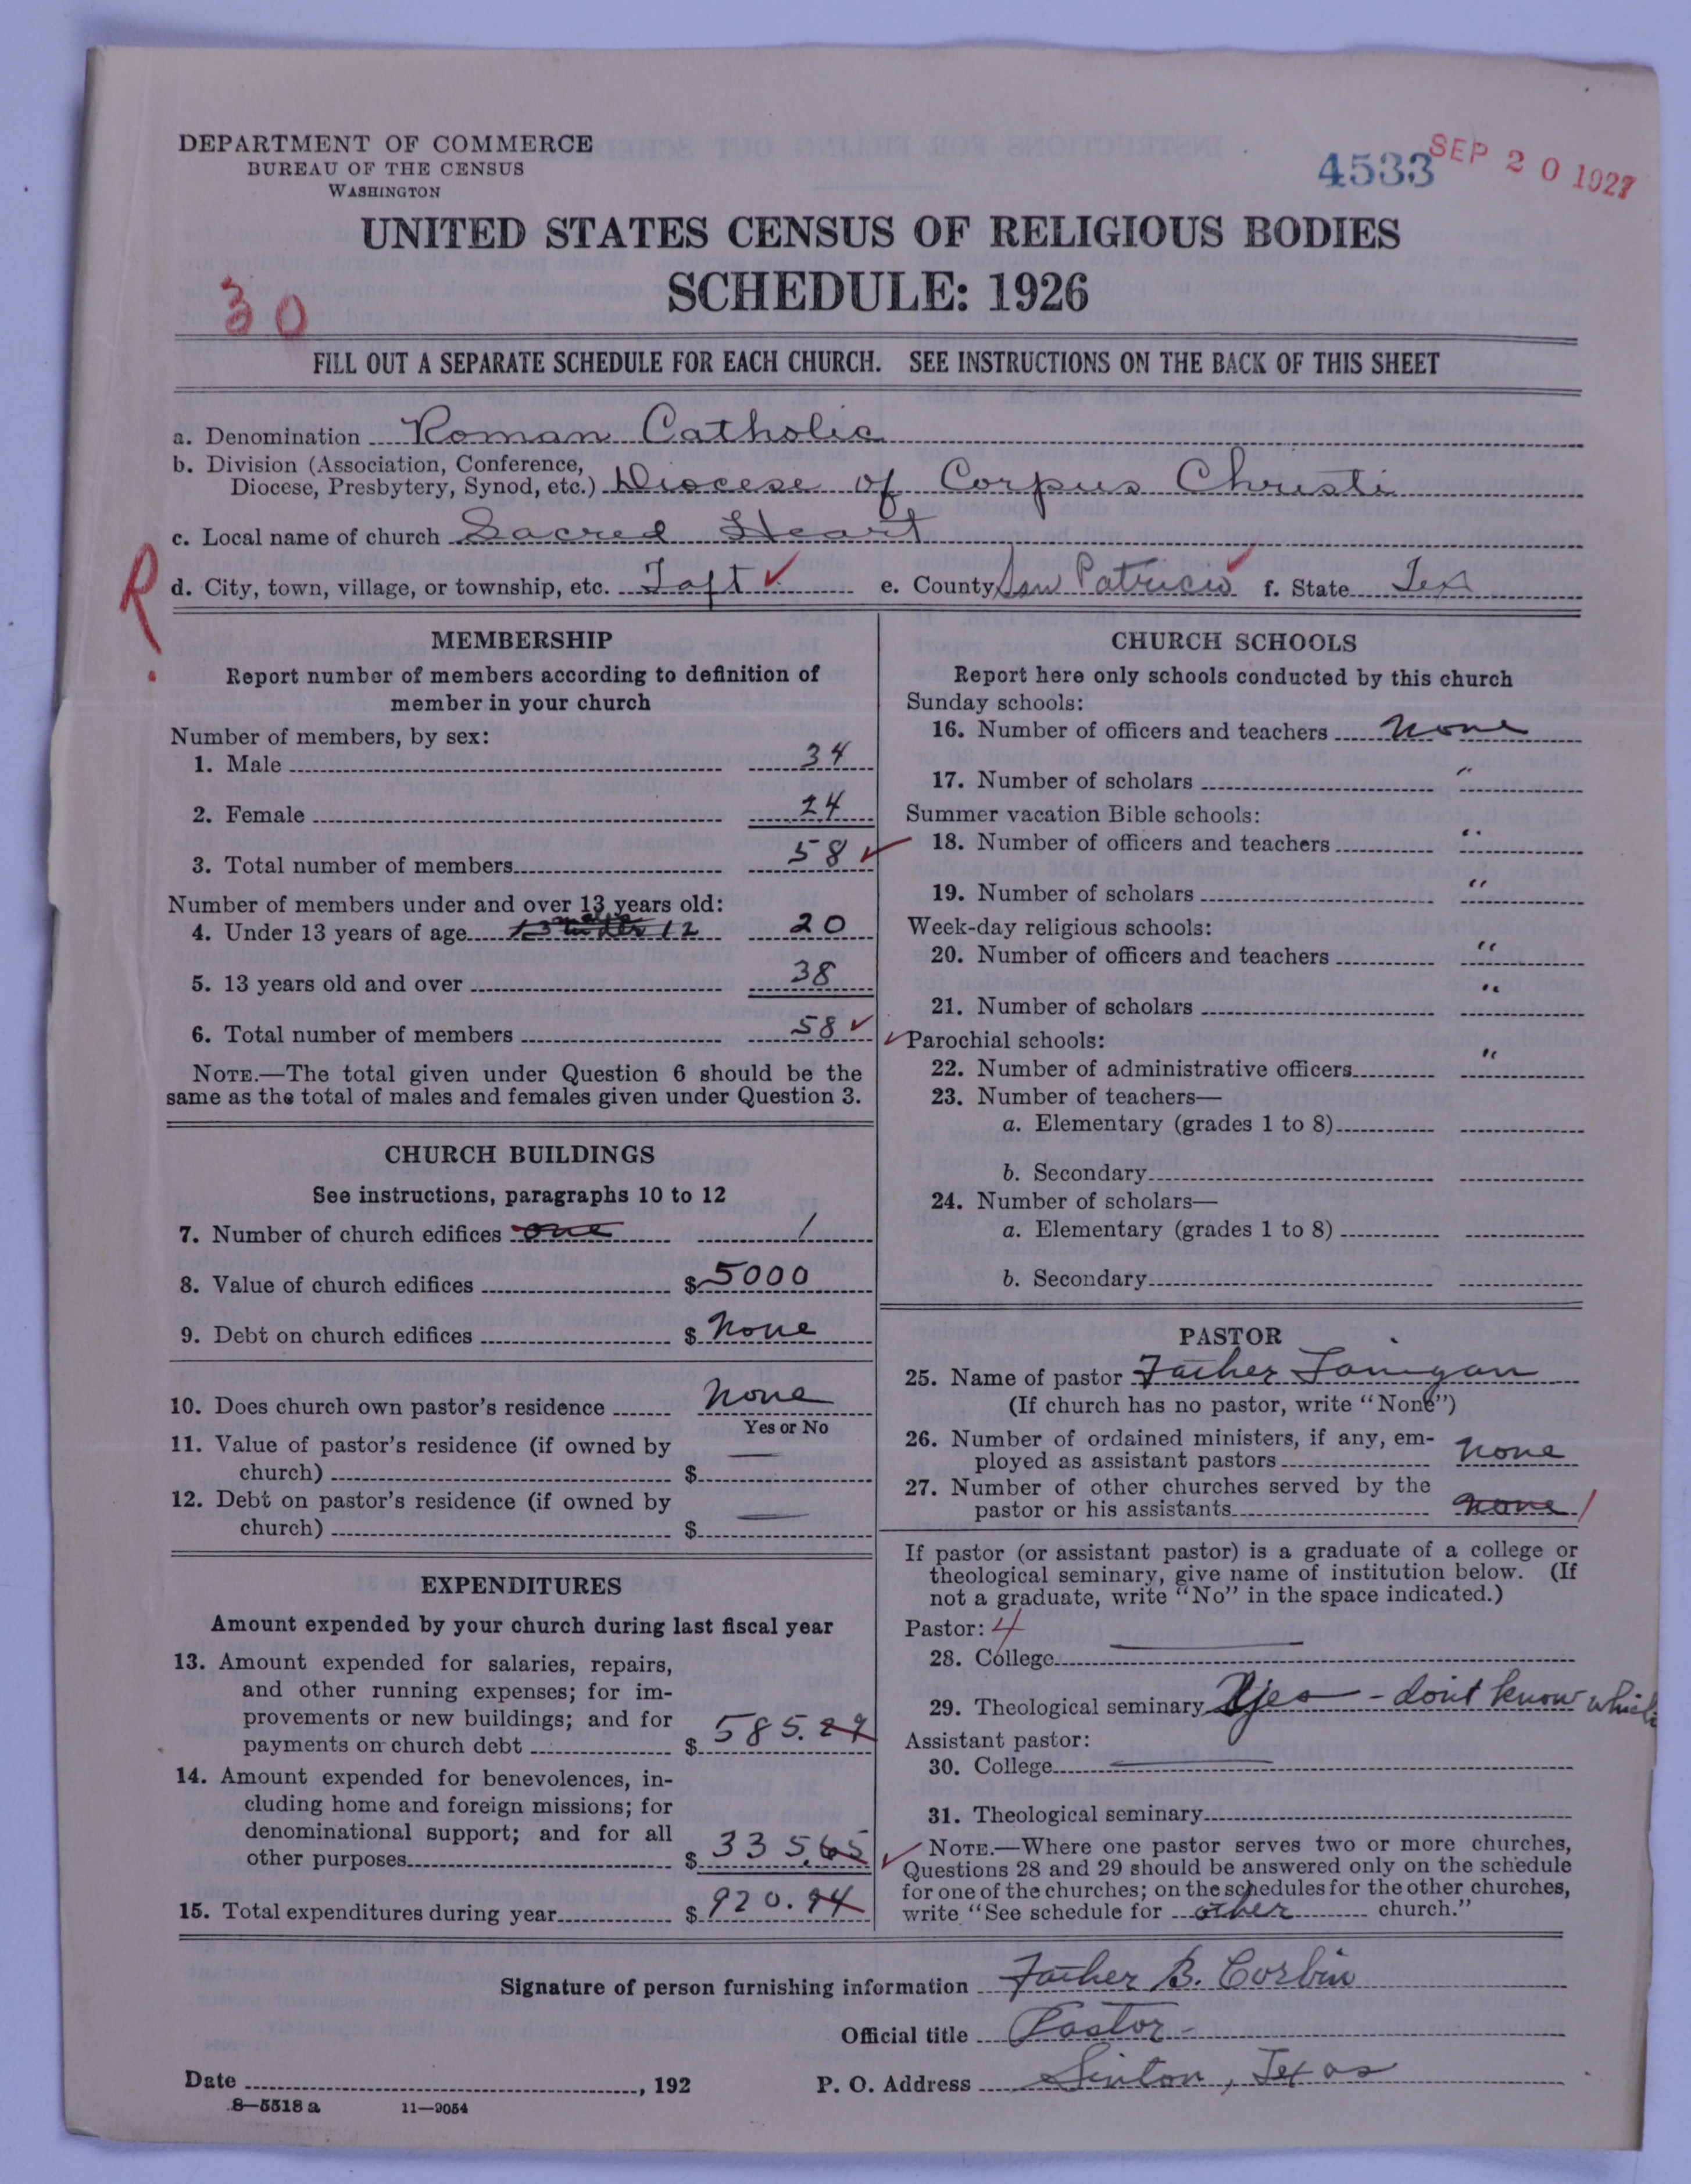 DEPARTMENT OF COMMERCE
BUREAU OF THE CENSUS
WASHINGTON
4533
SEP 20 1927
UNITED STATES CENSUS OF RELIGIOUS BODIES
SCHEDULE: 1926
30
FILL OUT A SEPARATE SCHEDULE FOR EACH CHURCH. SEE INSTRUCTIONS ON THE BACK OF THIS SHEET
a. Denomination Roman Catholic
b. Division (Association, Conference,
Diocese, Presbytery, Synod, etc.) Diocese of Corpus Christi
c. Local name of church Sacred Heart
R.
d. City, town, village, or township, etc. Taft ✓ e. County San Patricio ✓ f. State Tex
MEMBERSHIP
Report number of members according to definition of
member in your church
Number of members, by sex:
1. Male 34
2. Female 24
3. Total number of members 58 ✓
Number of members under and over 13 years old:
4. Under 13 years of age 12 20
5. 13 years old and over 38
6. Total number of members 58 ✓
NOTE.—The total given under Question 6 should be the
same as the total of males and females given under Question 3.
CHURCH BUILDINGS
See instructions, paragraphs 10 to 12
7. Number of church edifices one 1
8. Value of church edifices $ 5000
9. Debt on church edifices $ None
10. Does church own pastor's residence None
Yes or No
11. Value of pastor's residence (if owned by
church) $ —
12. Debt on pastor's residence (if owned by
church) $ —
EXPENDITURES
Amount expended by your church during last fiscal year
13. Amount expended for salaries, repairs,
and other running expenses; for im-
provements or new buildings; and for
payments on church debt $ 585.29
14. Amount expended for benevolences, in-
cluding home and foreign missions; for
denominational support; and for all
other purposes $ 335.65
15. Total expenditures during year $ 920.94
CHURCH SCHOOLS
Report here only schools conducted by this church
Sunday schools:
16. Number of officers and teachers None
17. Number of scholars "
Summer vacation Bible schools:
18. Number of officers and teachers "
19. Number of scholars "
Week-day religious schools:
20. Number of officers and teachers "
21. Number of scholars "
✓ Parochial schools:
22. Number of administrative officers "
23. Number of teachers—
a. Elementary (grades 1 to 8)
b. Secondary
24. Number of scholars—
a. Elementary (grades 1 to 8)
b. Secondary
PASTOR
25. Name of pastor Father
(If church has no pastor, write "None")
26. Number of ordained ministers, if any, em-
ployed as assistant pastors None
27. Number of other churches served by the
pastor or his assistants None 1
If pastor (or assistant pastor) is a graduate of a college or
theological seminary, give name of institution below. (If
not a graduate, write "No" in the space indicated.)
Pastor: 4
28. College —
29. Theological seminary Yes - dont know which
Assistant pastor:
30. College —
31. Theological seminary
✓ NOTE.—Where one pastor serves two or more churches,
Questions 28 and 29 should be answered only on the schedule
for one of the churches; on the schedules for the other churches,
write "See schedule for other church."
Signature of person furnishing information Father B. Corbin
Official title Pastor -
Date , 192 P. O. Address Sinton, Texas
8—5518 a 11—9054